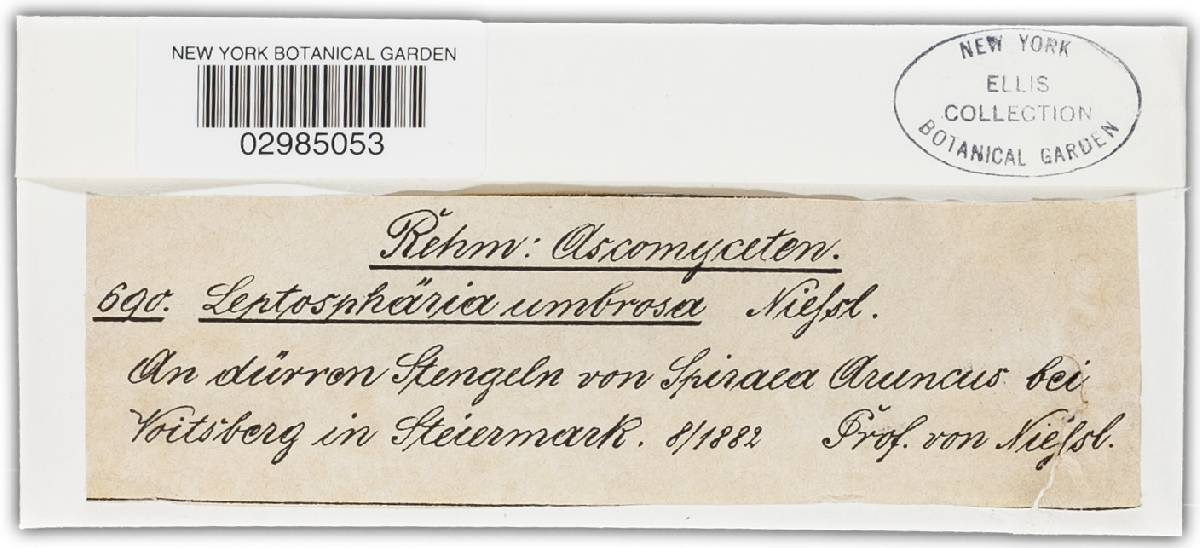 NEW YORK BOTANICAL GARDEN
02985053
NEW YORK
ELLIS
COLLECTION
BOTANICAL GARDEN
Rehm: Ascomyceten.
690. Leptosphäria umbrosa Nießl.
An dürren Stengeln von Spiraea Aruncus bei
Voitsberg in Steiermark. 8/1882 Prof. von Nießl.